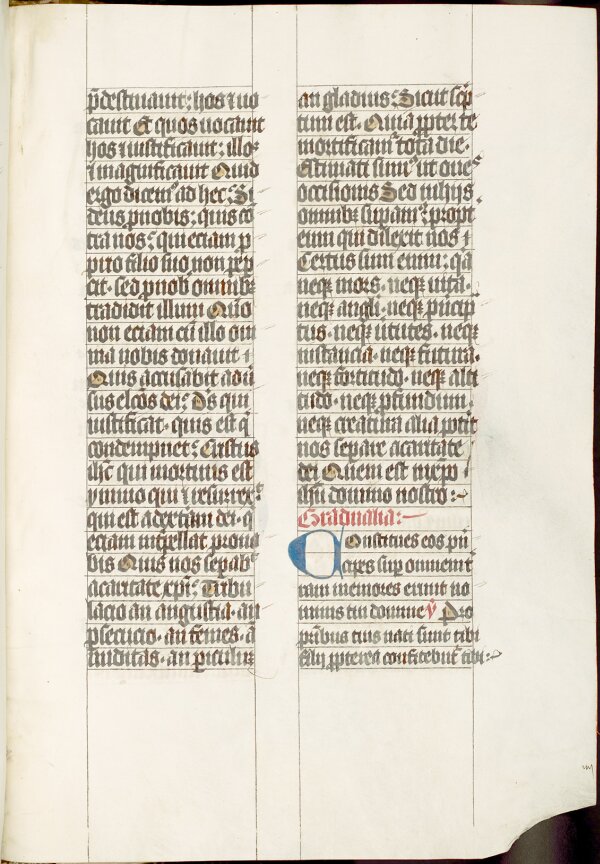 p̄destinauit: hos ⁊ uo
cauit Et quos uocauit
hos ⁊ iustificauit: illoꝰ
⁊ magnificauit Quid
ergo dicemꝰ ad hec: Si
deus pro nobis: quis cō
tra nos: qui eciam p
prio filio suo non peꝑ
cit· sed pro nobꝰ omnibꝫ
tradidit illum Quō
non eciam cū illo om
nia nobis donauit ⁊
Quis accusabit aduꝰ
sus elcōs dei: Ds qui
iustificat· quis est q̇
condempnet: Cristus
ihc qui mortuus est
ymmo qui ⁊ resurrexꝰ
qui est adextram dei· q̇
eciam inꝑpellat pro no
bis Quis nos sepabꝰ
a caritate xp̄i: Tribu
lacio an angustia· an
ꝑsecucio· an fames· a
nuditas· an piculuꝫ
an gladius: Sicut sc̄p
tum est· Quia ꝓpter te
mortificamꝰ tota die·
Estimati sumꝰ ut oueꝰ
occisionis Sed in hijs
omnibꝫ supamꝰ: propt
eum qui dilexit nos ⁊
Certus sum enim: q̄a
neqꝫ mors· neqꝫ uita·
neqꝫ angli· neqꝫ pncip
tus· neqꝫ ututes· neqꝫ
instancia· neqꝫ futura·
neqꝫ fortitudo· neqꝫ alti
tudo· neqꝫ pfundum·
neqꝫ creatura alia potꝰit
nos separe a caritate
dei Quem est in xp̄o
ihū domino nostro :~
Gradualia:
Constitues eos pn̄
cipes sup omnem t̄
ram memores erunt no
minis tui domine ℣ Pro
pr̄ibus tuis nati sunt tibi
filij ꝓpterea confitebūt tibi :~